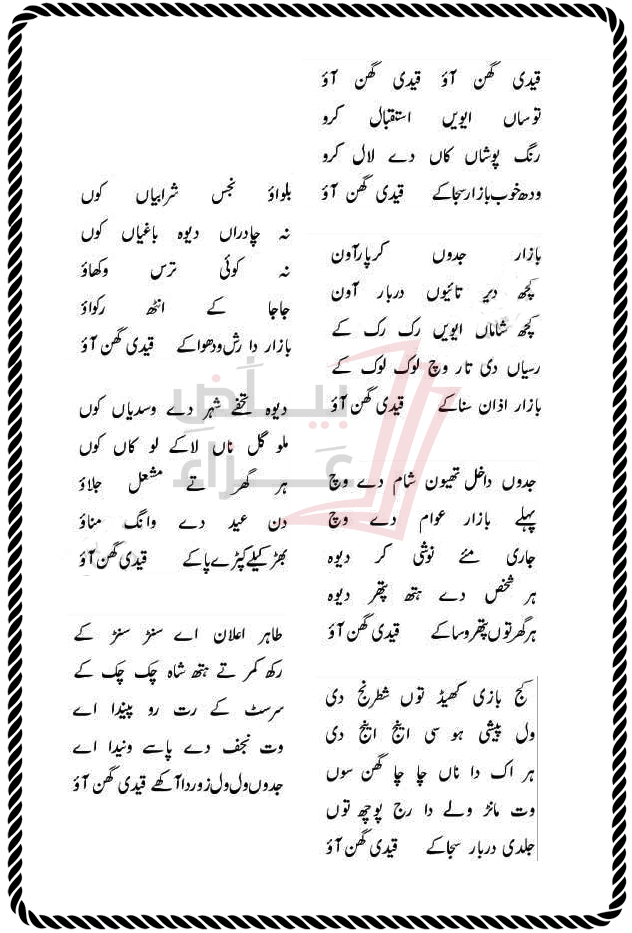 قیدی گھن آؤ قیدی گھن آؤ
توساں ایویں استقبال کرو
رنگ پوشاں کاں دے لال کرو
ودھ خوب بازار سجا کے قیدی گھن آؤ
بازار جدوں کر پار آون
کجھ دیر تائیوں دربار آون
کجھ شاماں ایویں رک رک کے
رسیاں دی تار وچ لوک لوک کے
بازار اذان سنا کے قیدی گھن آؤ
جدوں داخل تھیون شام دے وچ
پہلے بازار عوام دے وچ
جاری مئے نوشی کر دیوہ
ہر شخص دے ہتھ پتھر دیوہ
ہر گھر توں پتھر وسا کے قیدی گھن آؤ
کج بازی کھیڈ توں شطرنج دی
ول پیشی ہو سی اینج اینج دی
ہر اک دا ناں چا چا گھن سوں
وت مانڑ ولے دا رج پوچھ توں
جلدی دربار سجا کے قیدی گھن آؤ
بلواؤ نجس شرابیاں کوں
نہ چادراں دیوہ باغیاں کوں
نہ کوئی ترس وکھاؤ
جاجا کے انٹھ رکواؤ
بازار دا رش ودھوا کے قیدی گھن آؤ
دیوہ تحفے شہر دے وسدیاں کوں
ملو گل ناں لاکے لو کاں کوں
ہر گھر تے مشعل جلاؤ
دن عید دے وانگ مناؤ
بھڑکیلے کپڑے پا کے قیدی گھن آؤ
طاہر اعلان اے سنڑ سنڑ کے
رکھ کمر تے ہتھ شاہ چک چک کے
سرسٹ کے رت رو پیندا اے
وت نجف دے پاسے ویندا اے
جدوں ول ول زوردا آکھے قیدی گھن آؤ
بیاض
عزاء